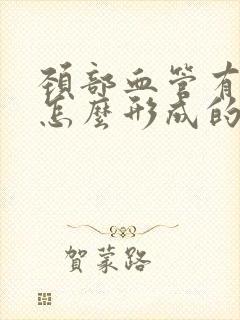 頚部血管有
怎麼形成的
賀蒙路